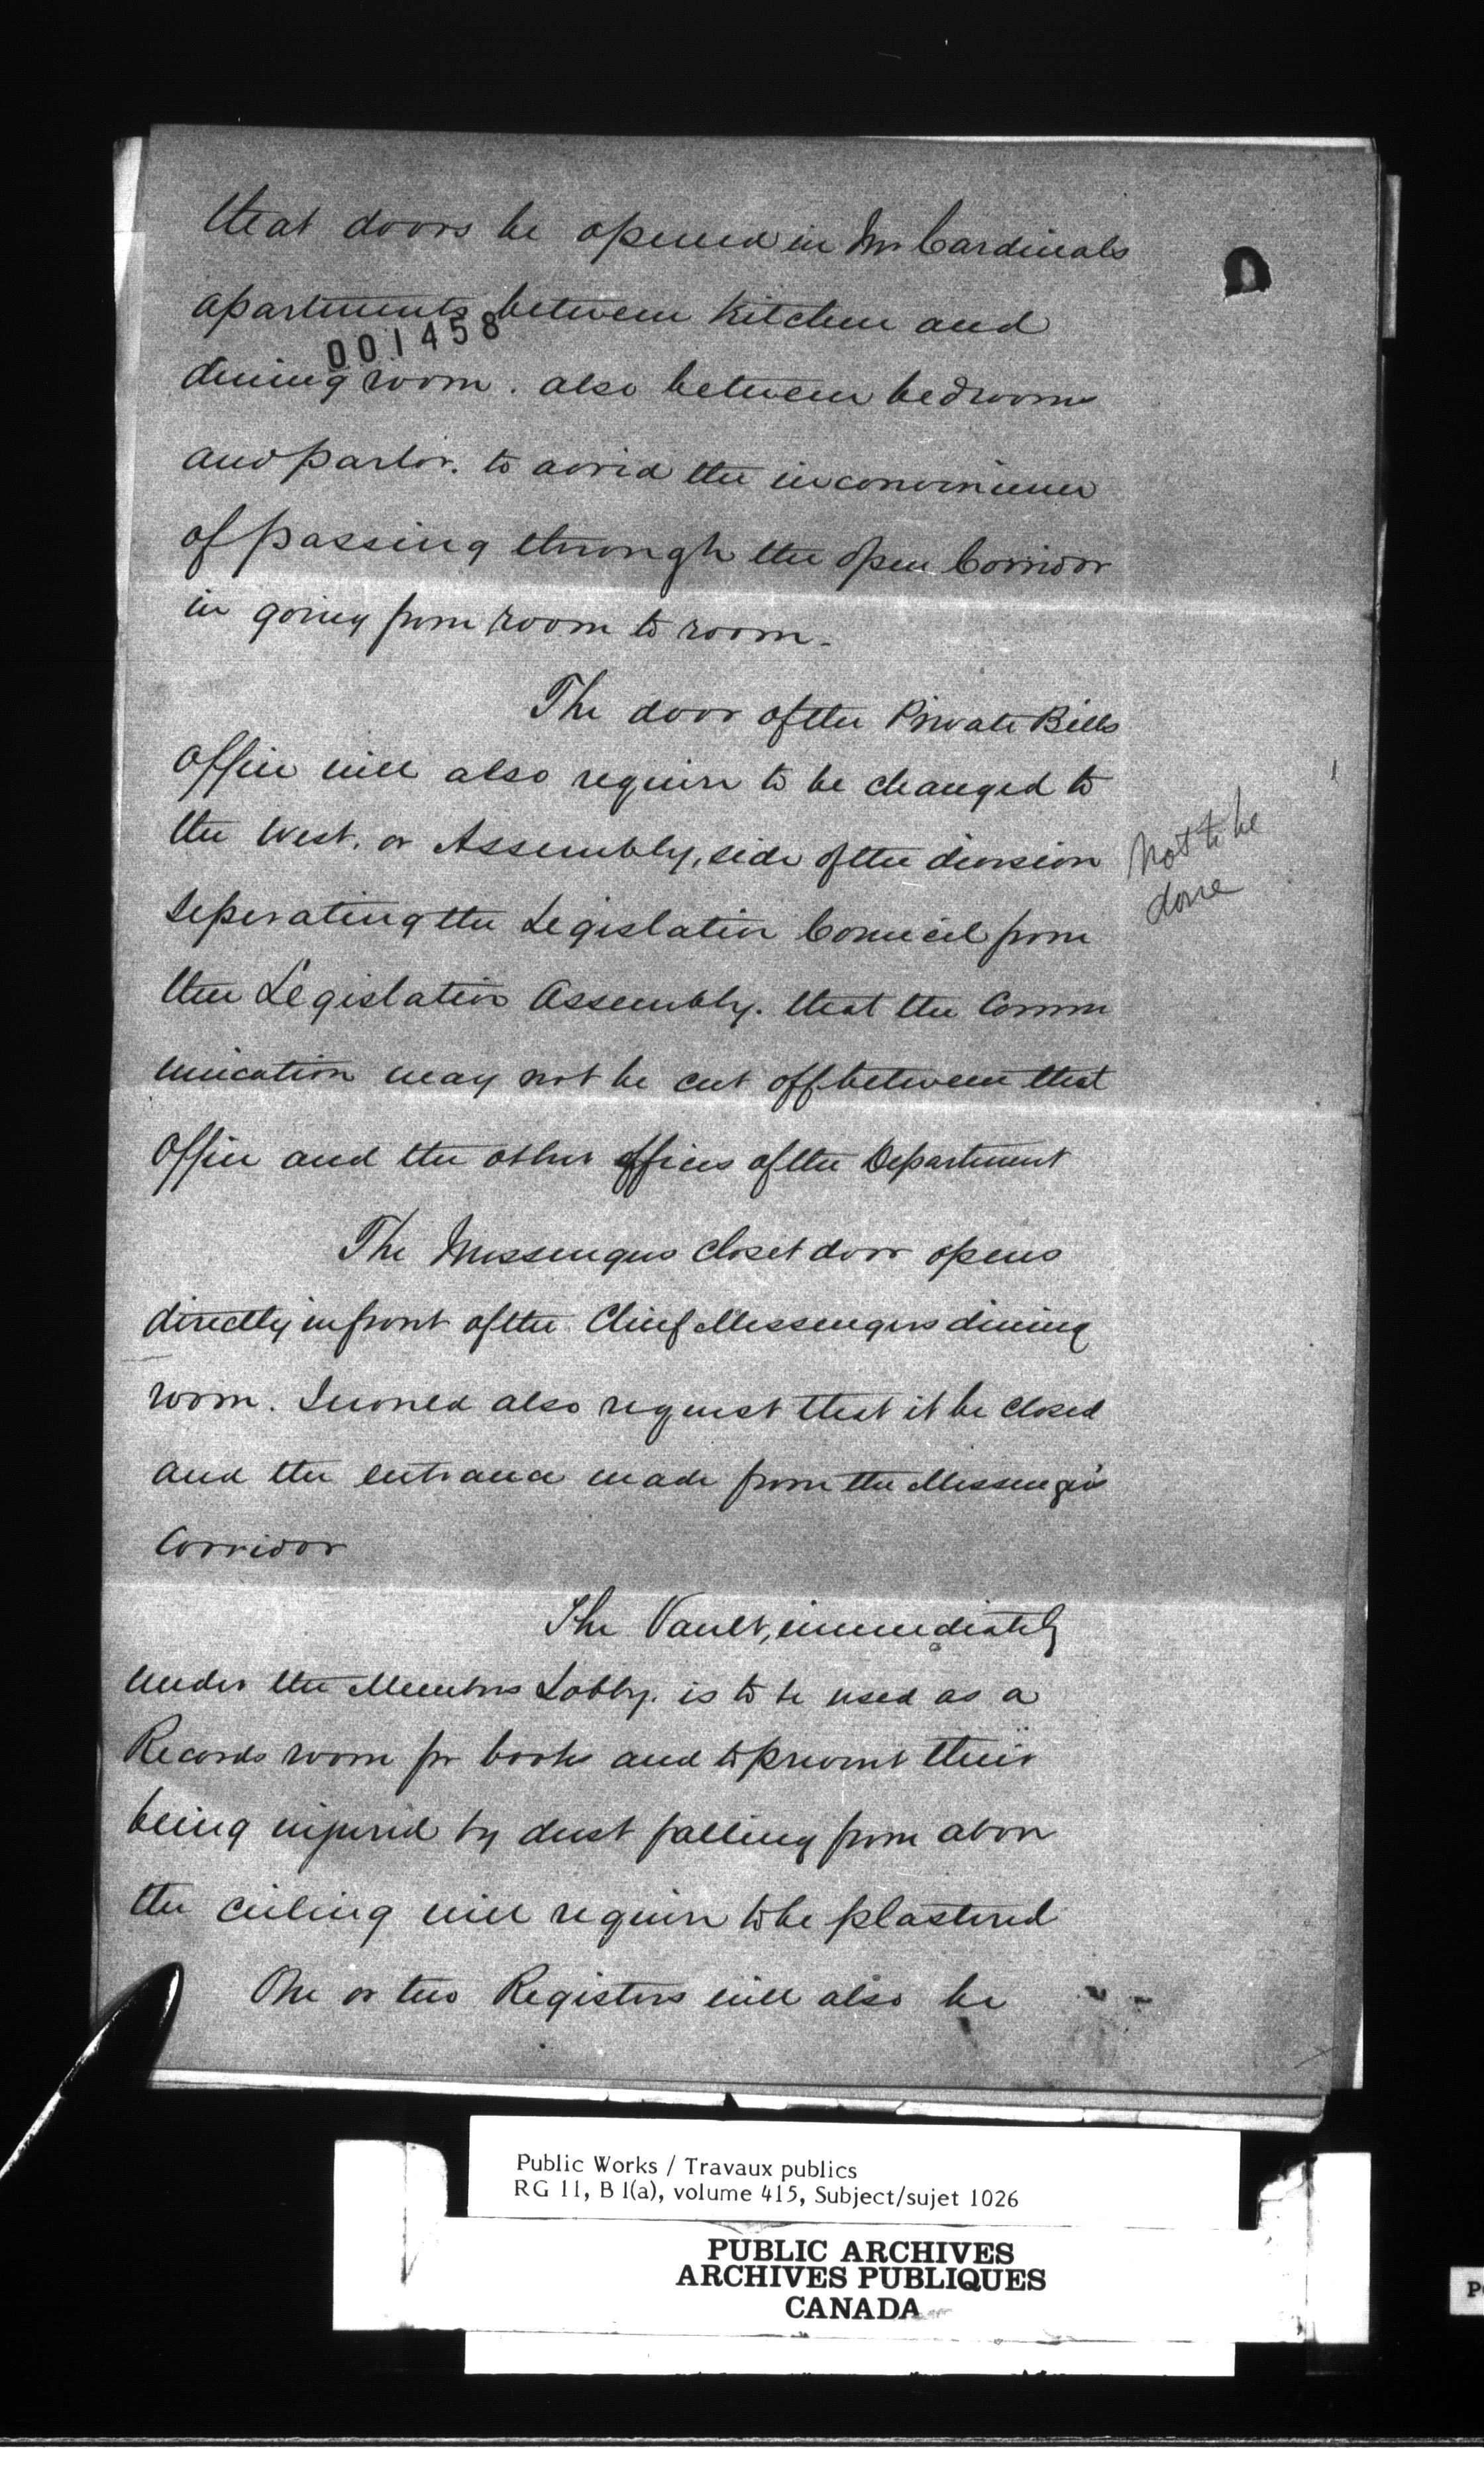 that doors be opened in Mr Cardinals
apartments between Kitchen and
001458
dining room. also between bedrooms
and parlor. to avoid the inconvenience
of passing through the open Corridor
in going from room to room.
The door of the Private Bills
Office will also require to be changed to
the West, or Assembly, side of the division
Not to be
done
seperating the Legislative Council from
the Legislative Assembly. that the Comm
unication may not be cut off between that
Office and the other offices of the Department
The Messengers closet door opens
directly in front of the Chief Messengers dining
room. I would also request that it be closed
and the entrance made from the Messengers
Corridor
The Vault, immediately
under the Members Lobby. is to be used as a
Records room for books and to prevent their
being injured by dust falling from above
the ceiling will require to be plastered
One or two Registers will also be
Public Works / Travaux publics
RG 11, B 1(a), volume 415, Subject/sujet 1026
PUBLIC ARCHIVES
ARCHIVES PUBLIQUES
CANADA